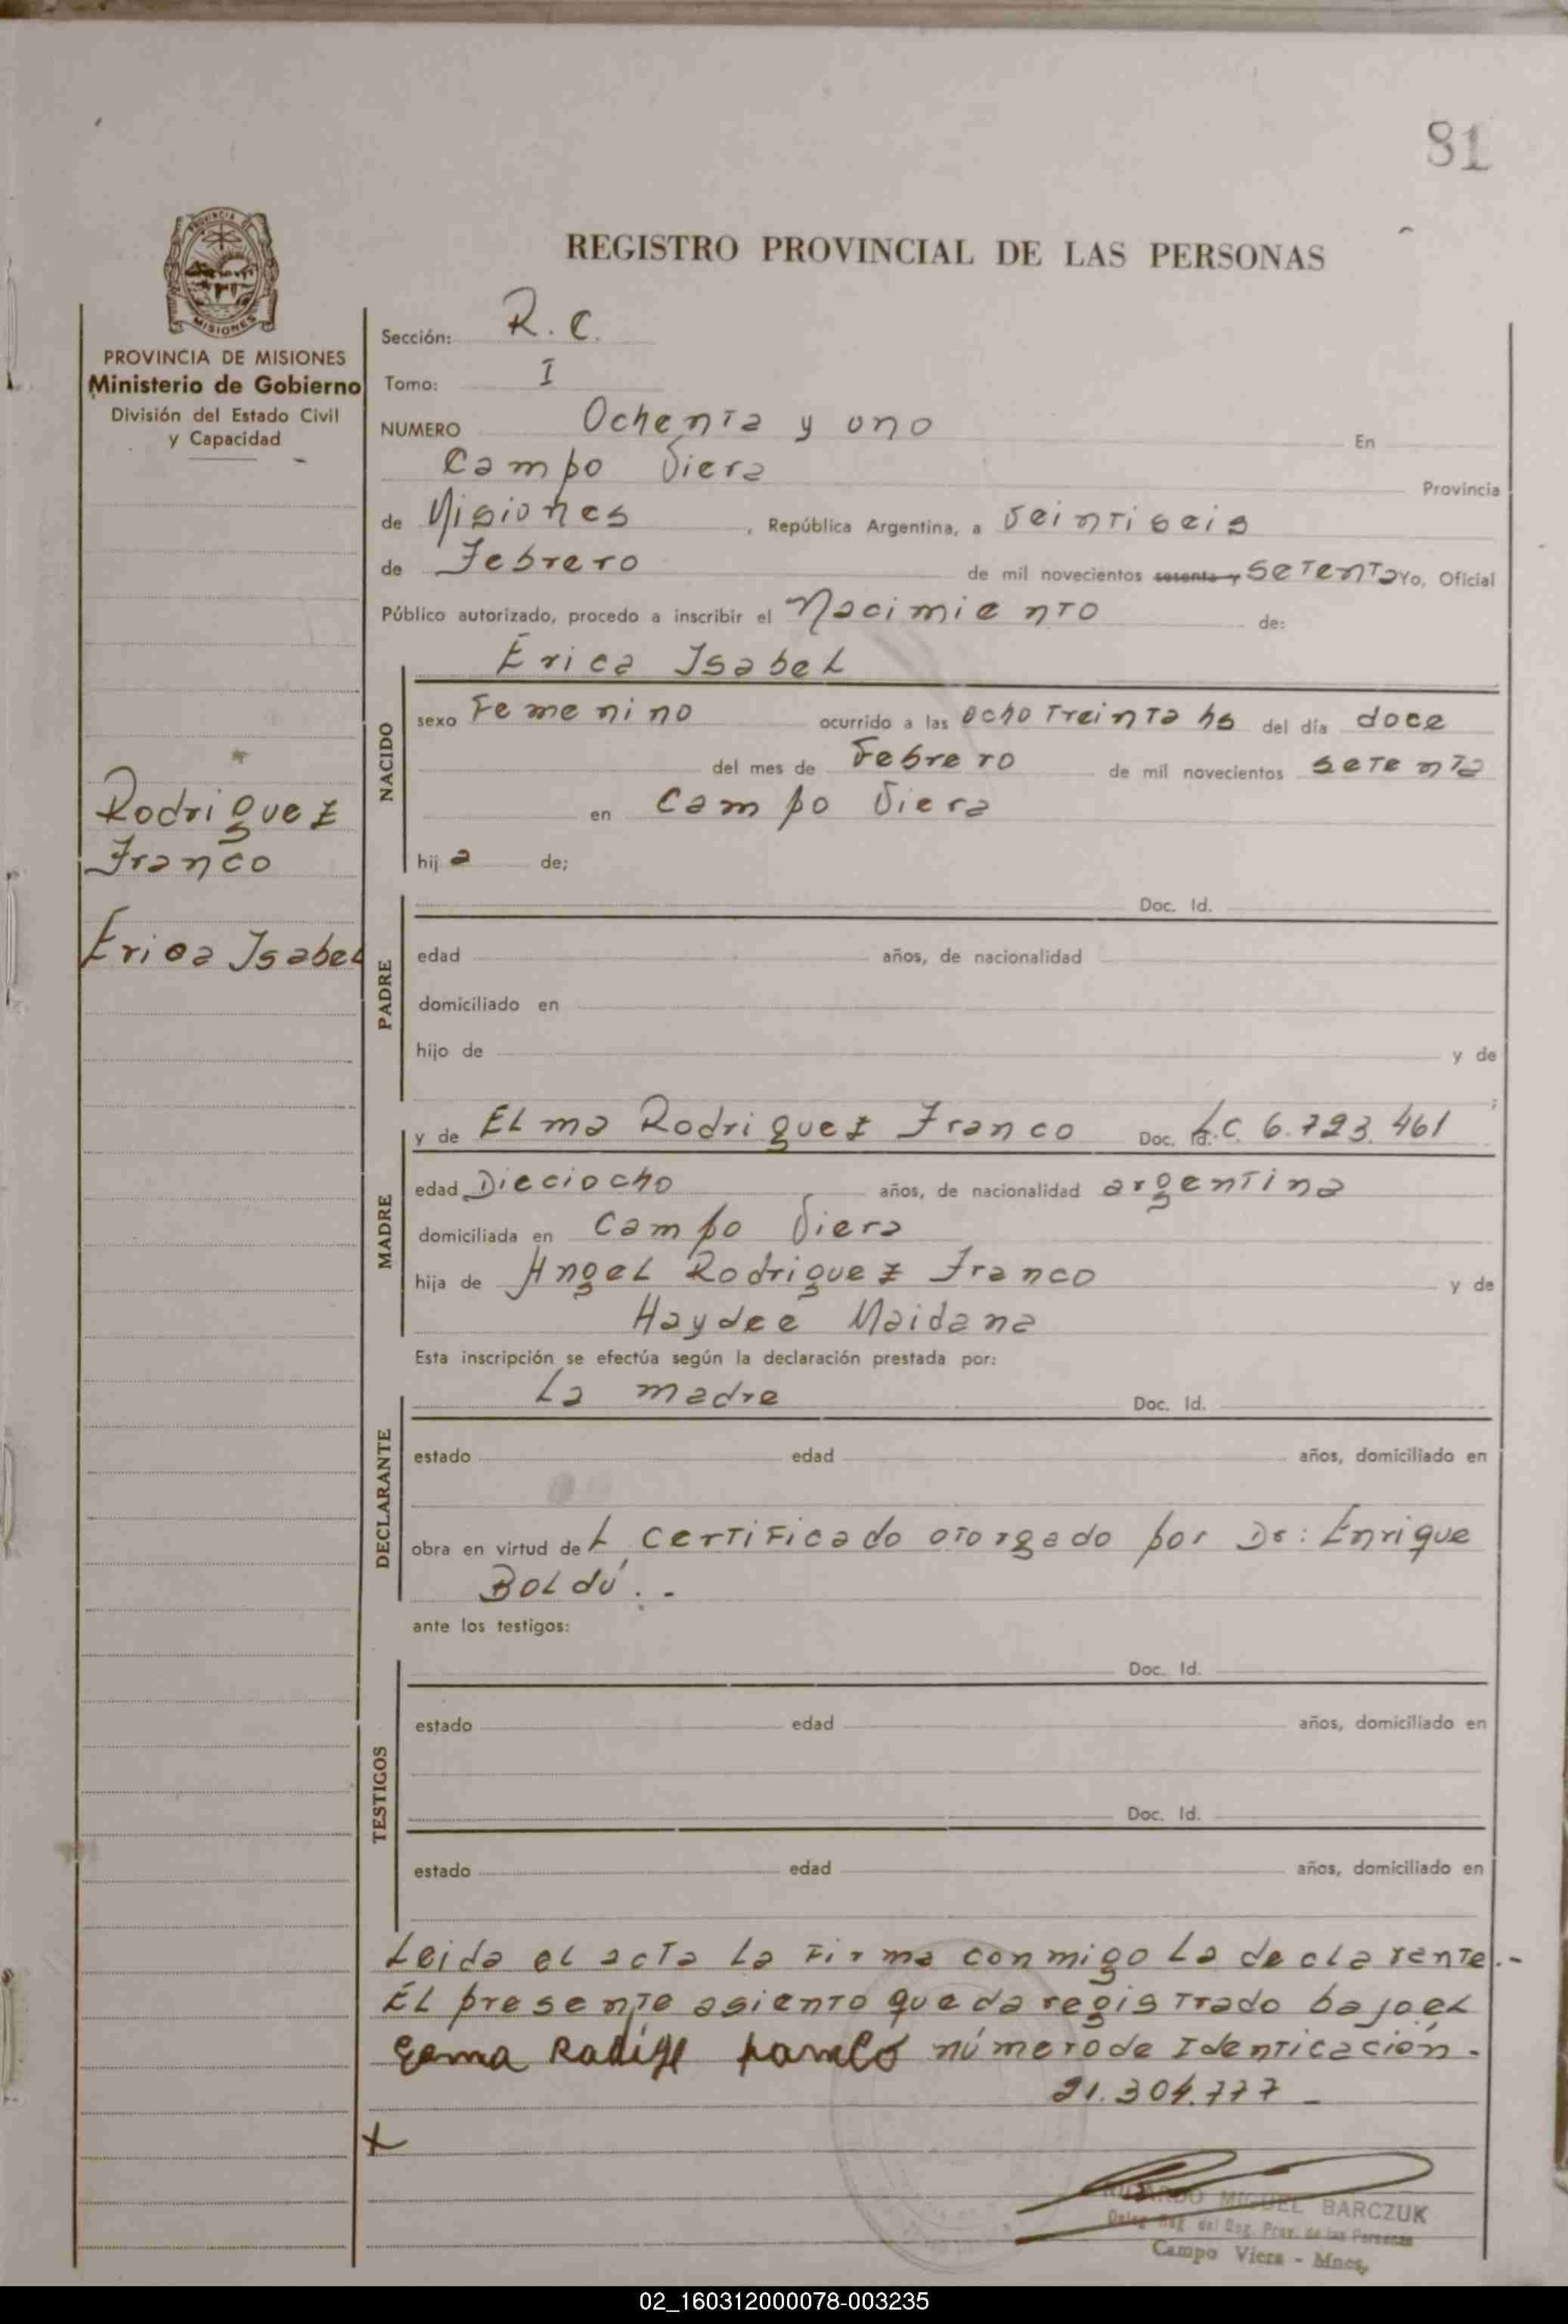 81
PROVINCIA DE
MISIONES
PROVINCIA DE MISIONES
Ministerio de Gobierno
División del Estado Civil
y Capacidad
Rodriguez
Franco
Erica Isabel
REGISTRO PROVINCIAL DE LAS PERSONAS
Sección: R. C.
Tomo: I
NUMERO Ochenta y uno En
Campo Viera Provincia
de Misiones, República Argentina, a veintiseis
de Febrero de mil novecientos sesenta y setenta Yo, Oficial
Público autorizado, procedo a inscribir el Nacimiento de:
Erica Isabel
NACIDO
sexo Femenino ocurrido a las ocho treinta hs del día doce
del mes de Febrero de mil novecientos setenta
en Campo Viera
hija de;
PADRE
Doc. Id.
edad años, de nacionalidad
domiciliado en
hijo de y de
;
MADRE
y de Elma Rodriguez Franco Doc. Id. L.C. 6.723.461
edad Dieciocho años, de nacionalidad argentina
domiciliada en Campo Viera
hija de Angel Rodriguez Franco y de
Haydee Maidana
Esta inscripción se efectúa según la declaración prestada por:
DECLARANTE
La madre Doc. Id.
estado edad años, domiciliado en
obra en virtud del certificado otorgado por Dr: Enrique
Boldú. -
ante los testigos:
TESTIGOS
Doc. Id.
estado edad años, domiciliado en
Doc. Id.
estado edad años, domiciliado en
Leida el acta la firma conmigo la declarente.-
El presente asiento queda registrado bajo el
número de Identicación.
21.304.777 -
RICARDO MIGUEL BARCZUK
Deleg. Reg. del Reg. Prov. de las Personas
Campo Viera - Mnes.
02_160312000078-003235